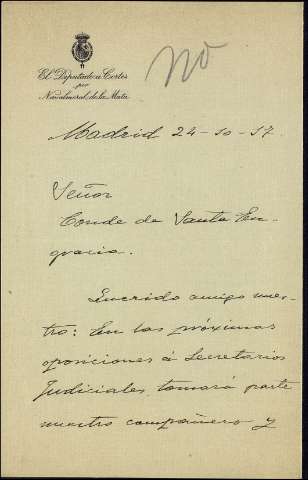 no
El Diputado a Cortes
por
Navalmoral de la Mata
Madrid 24-10-17.
Señor
Conde de Santa En-
gracia.
Querido amigo nues-
tro: En las próximas
oposiciones á Secretarios
Judiciales, tomará parte
nuestro compañero y